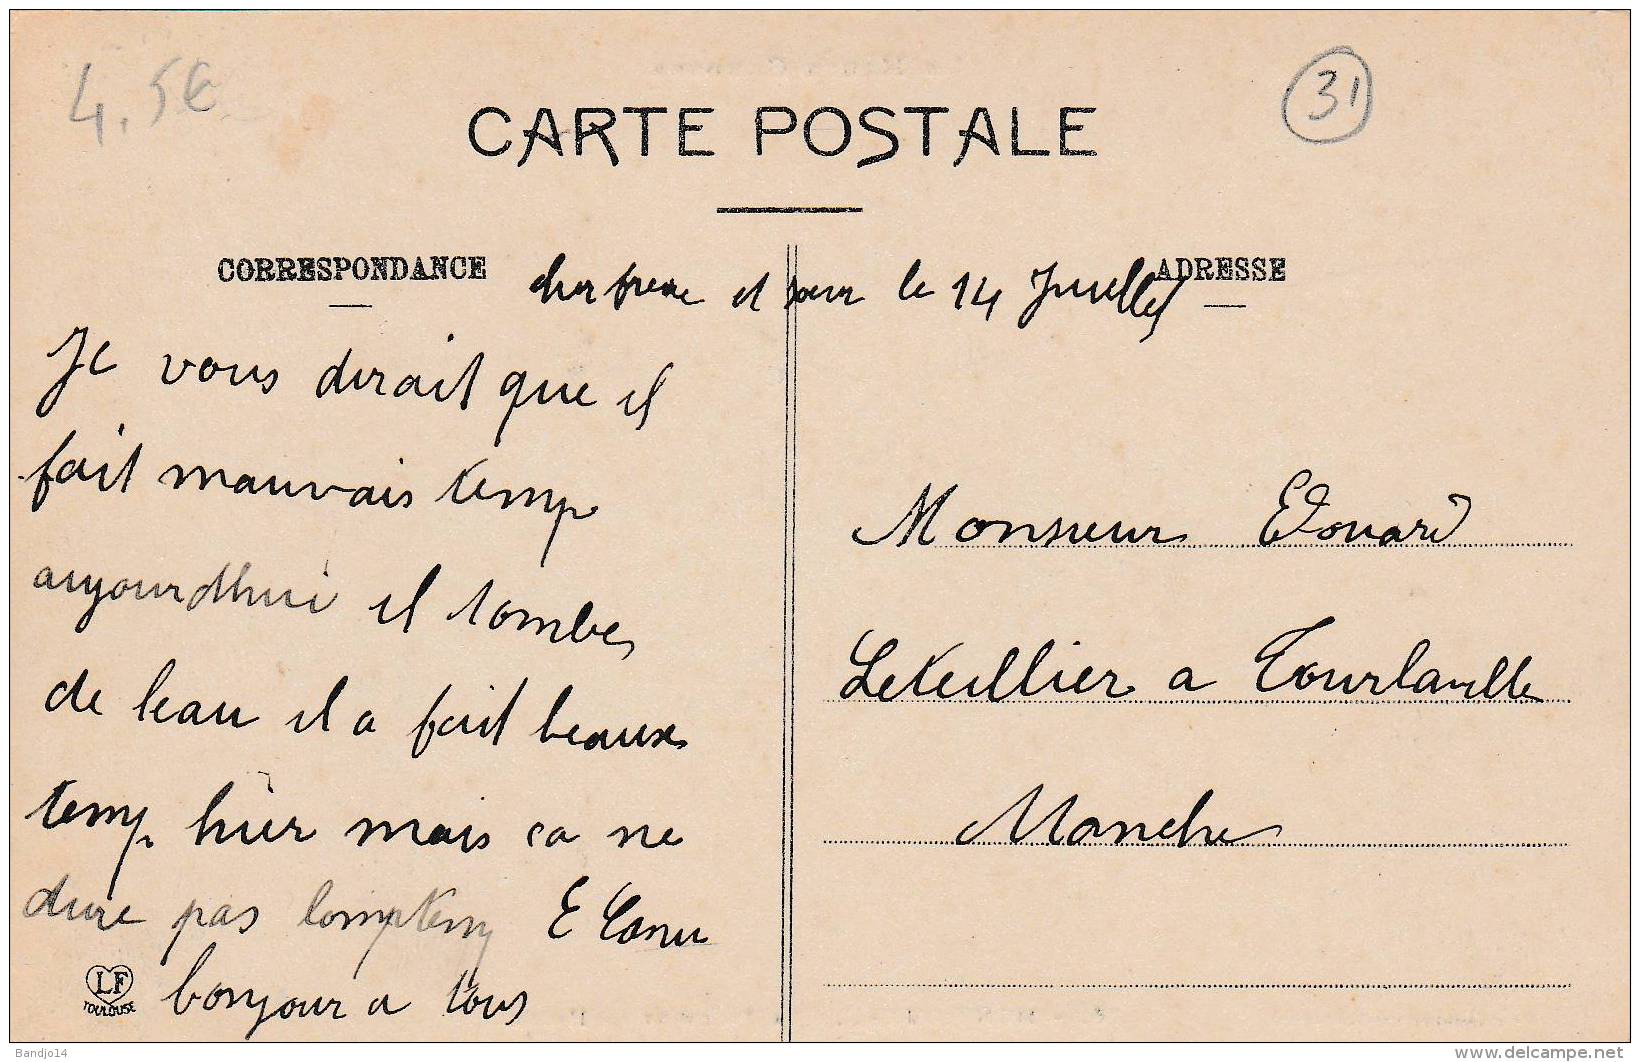 4.5€
31
CARTE POSTALE
CORRESPONDANCE
ADRESSE
cher frere et soeur le 14 Juillet
Je vous dirait que il
fait mauvais temp
aujourdhui il tombe
de leau il a fait beaux
temp hier mais ca ne
dure pas lomptemp E Canu
bonjour a tous
Monsieur Edouard
Letellier a Tourlaville
Manche
LF
TOULOUSE
Bandjo14
delcampe.net